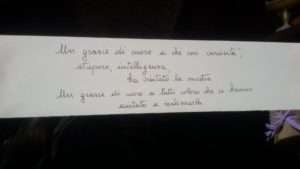 Un grazie di cuore a chi con curiosità,
stupore, intelligenza
ha visitato la mostra
Un grazie di cuore a tutti coloro che ci hanno
aiutato a realizzarla